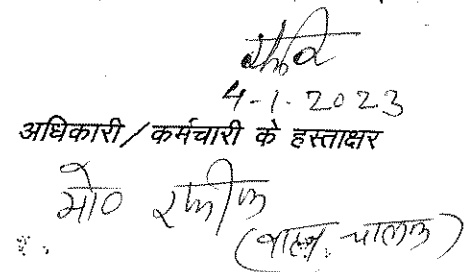 रफीक
4-1-2023
अधिकारी/कर्मचारी के हस्ताक्षर
मो० रफीक
(वाहन चालक)